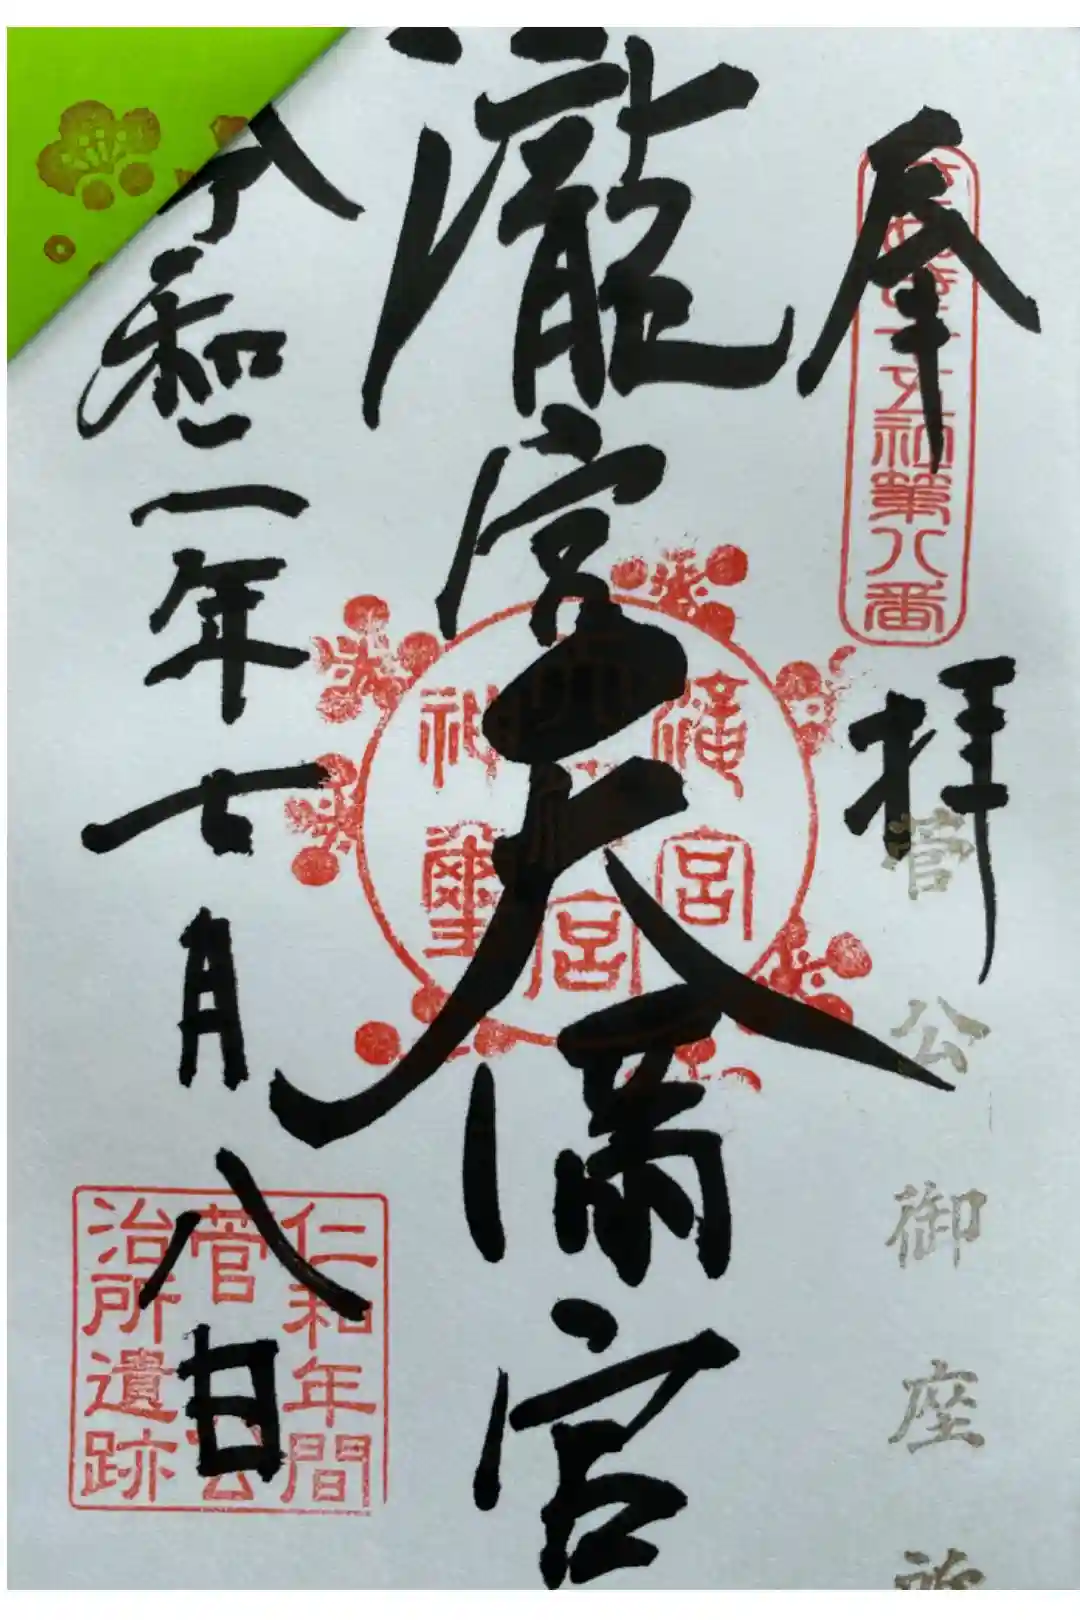 奉拝
第八番
菅公御座所
瀧宮天満宮
滝宮
天満宮
神璽
令和二年七月八日
仁和年間
菅公
治所遺跡